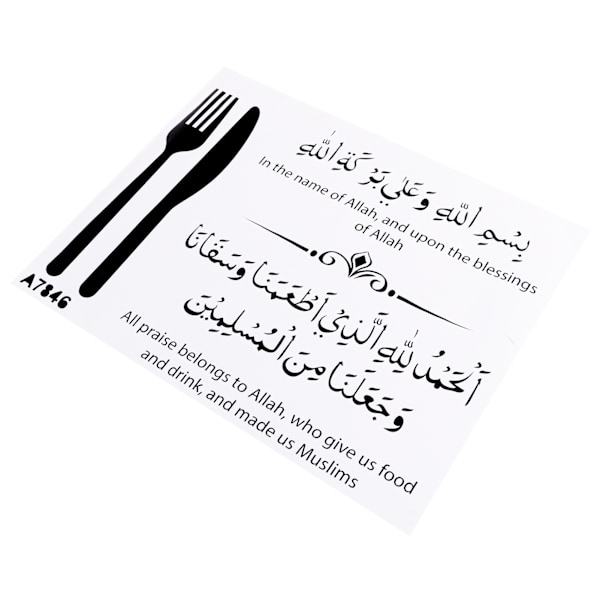 بِسْمِ اللّٰهِ وَعَلٰي بَرَكَةِ اللّٰهِ
In the name of Allah, and upon the blessings
of Allah
اَلْحَمْدُ لِلّٰهِ الَّذِيْ اَطْعَمَنَا وَسَقَانَا
وَجَعَلَنَا مِنَ الْمُسْلِمِيْنَ
All praise belongs to Allah, who give us food
and drink, and made us Muslims
A7846